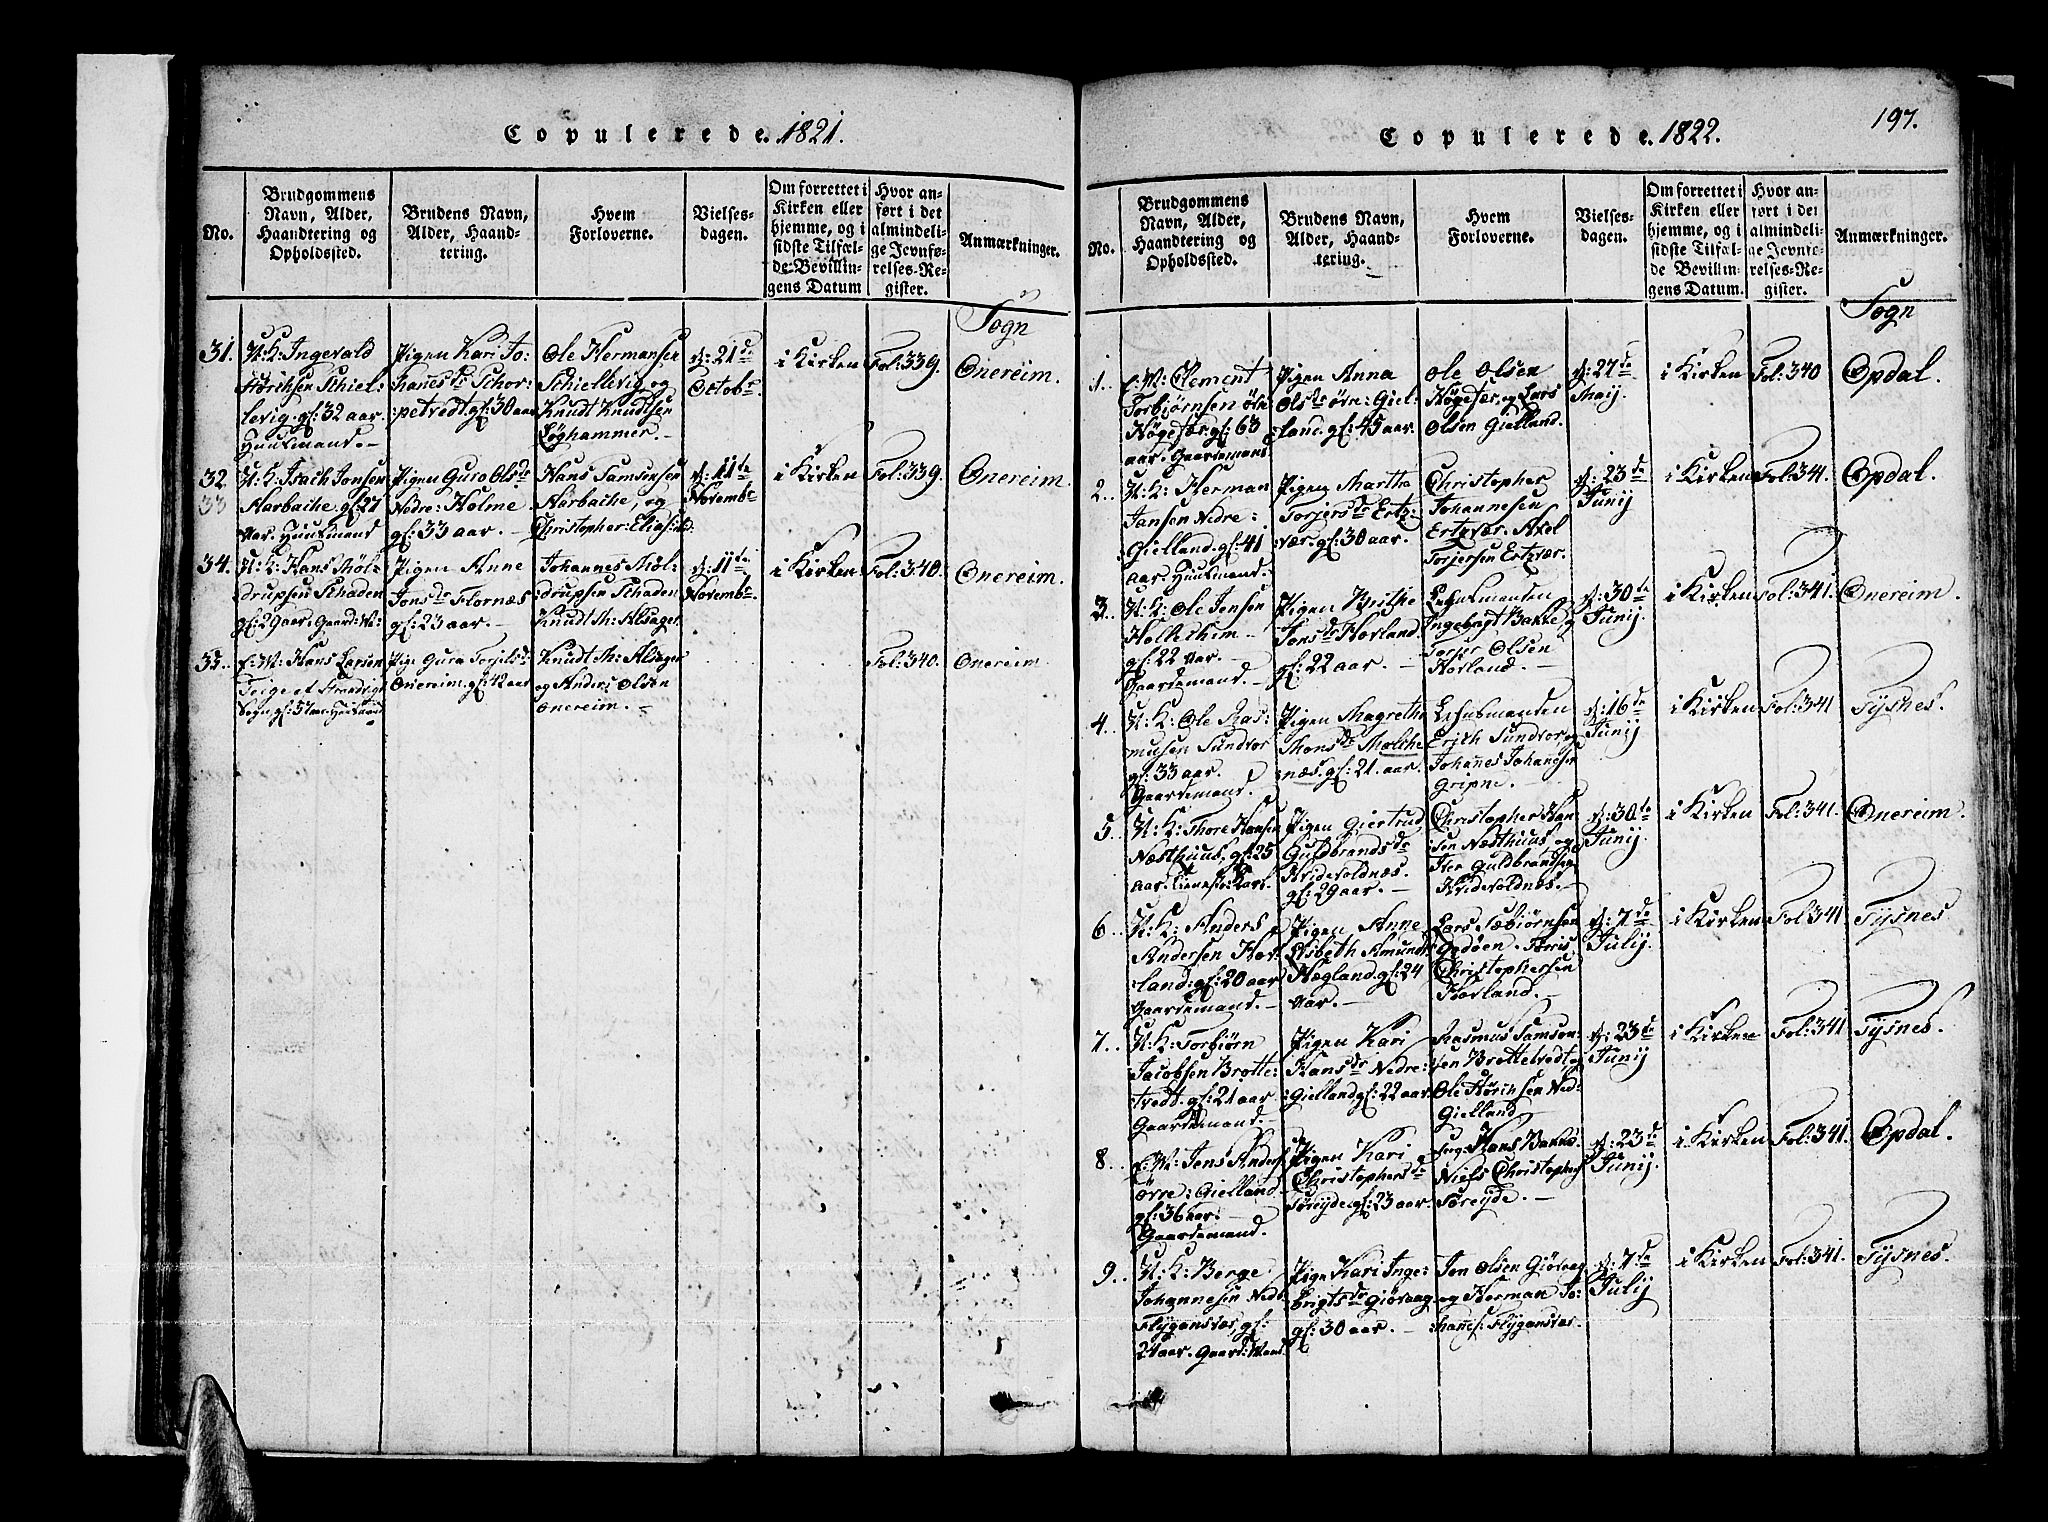 Copulerede. 1821.
No.
Brudgommens Navn, Alder, Haandtering og Opholdssted.
Brudens Navn, Alder, Haandtering.
Hvem Forloverne.
Vielsesdagen.
Om forrettet i Kirken eller hjemme, og i sidste Tilfælde Bevillingens Datum
Hvor anført i det almindelige Jevnførelses-Register.
Anmærkninger.
Sogn
31.
U: K: Ingevald
Siellevig. gl: 32 aar.
Huusmand.
Pigen Kari Jo:
hanes dr
gl: 30 aar
Ole Hermansen
Schiellevig og
Knudt Knudtsen
Løghammer.
d: 21de
Octobr
i Kirken
Fol: 339.
Onereim.
32
33
U: K: Isach Jonsen
Aarbache. gl: 27
aar. Huusmand
Pigen Guro Ols dr
Nedre: Holme
gl: 33 aar.
Hans Samsonsen
Aarbache, og
Christopher: Elias:
d: 11te
Novembr
i Kirken
Fol: 339.
Onereim.
34.
U: K: Hans Mol:
drupsen Schaden
gl: 29 aar. Gaard: M:
Pigen Anne
Jons dr Flornæs
gl: 23 aar.
Johannes Mol:
drupsen Schaden
Knudt M: Alsager
d: 11te
Novembr.
i Kirken
Fol: 340.
Onereim.
35.
E: M: Hans Larsen
Teige
Sogn gl: 57 aar
Pig: Gura Torjils dr
Onereim. gl: 42 aar
Knudt M: Alsager
og Anders Olsen
Onereim.
Fol: 340.
Onereim.
197.
Copulerede. 1822.
No.
Brudgommens Navn, Alder, Haandtering og Opholdssted.
Brudens Navn, Alder, Haandtering.
Hvem Forloverne.
Vielsesdagen.
Om forrettet i Kirken eller hjemme, og i sidste Tilfælde Bevillingens Datum.
Hvor anført i det almindelige Jevnførelses-Register.
Anmærkninger.
Sogn
1.
E: M: Clement
Torbiørnsen øvre
gl: 63
aar. Gaardemand
Pigen Anna
Ols dr øvre: Giel:
land. gl: 45 aar.
Ole Olsen
og Lars
Olsen Gielland.
d: 27de
Maij.
i Kirken
Fol: 340
Opdal.
2.
U: K: Herman
Jansen Nedre:
Gielland. gl: 41
aar. Huusmand.
Pigen Martha
Torjers dr Ertz:
vær. gl: 30 aar.
Christopher
Johannesen
Ertzvær. Axel
Torjersen Ertzvær.
d: 23de
Junij
i Kirken
Fol: 341.
Opdal.
3.
U: K: Ole Jensen
gl: 22 aar.
Gaardemand.
Pigen Brithe
Jons dr Hovland.
gl: 22 aar.
Lehnsmanden
Ingebrigt Bakke, og
Torjer Olsen
Hovland.
d: 30te
Junij.
i Kirken
Fol: 341.
Onereim.
4.
U: K: Ole Ras:
musen Sundvor
gl: 33 aar.
Gaardemand.
Pigen Magrethe
Mons dr Malche
næs. gl: 21. aar.
Lehnsmanden
Erich Sundvor og
Johannes Johannesen
Gripne.
d: 16de
Junij
i Kirken
Fol: 341
Tysnes.
5.
U: K: Thore Hansen
Næsthuus, gl: 25
aar.
Pigen Giertrud
Guldbrands dr
Hvidevoldnæs.
gl: 29 aar.
Christopher Han
sen Næsthuus og
Iver Guldbrandsen
Hvidevoldnæs.
d: 30te
Junij.
i Kirken
Fol: 341.
Onereim.
6.
U: K: Anders
Andersen Hov
land: gl: 20 aar
Gaardemand.
Pigen Anne
Elsbeth Amunds
Hegland. gl: 24
aar.
Lars Sæbiørnsen
Godøen. Tørris
Christophersen
Hovland.
d: 7de
Julij.
i Kirken
Fol: 341
Tysnes
7.
U: K: Torbiørn
Jacobsen Brotte:
tvedt. gl: 21 aar
Gaardemand.
Pigen Kari
Hans dr Nedre
Gielland gl: 22 aar
Rasmus Samson:
sen Brottetvedt, og
Ole
Gielland
d: 23de
Junij
i Kirken
Fol: 341
Tysnes.
8.
E: M: Jens Anders
øvre: Gielland
gl: 36 aar.
Gaardemand.
Pigen Kari
Christophers dr
Søreijde. gl: 23 aar.
Hans
Niels Christophers
Søreijde.
d: 23de
Junij.
i Kirken
Fol: 341.
Opdal.
9.
U: K: Berge
Johannesen Nedr
Flygansvær, gl:
24 aar. Gaard: Mand.
Pigen Kari Inge:
brigts dr Giøvaag
gl: 30 aar.
Jon Olsen Giøvaag
og Herman Jo:
hannes: Flygansvær.
d: 7de
Julij
i Kirken
Fol: 341.
Tysnes.